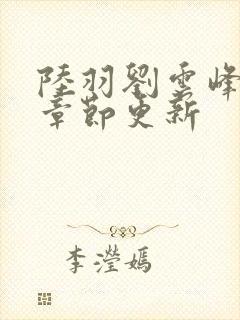 陸羽劉雲峰
章節更新
李瀅嫣